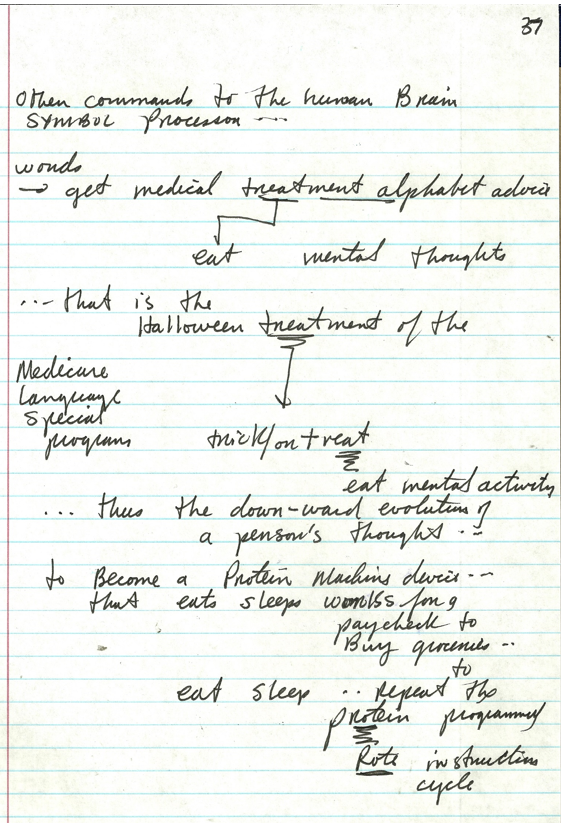 37
Other commands to the human Brain
SYMBOL Processor ---
words
→ get medical treatment alphabet advice
eat mental thoughts
... that is the
Halloween treatment of the
Medicare
Language
Special
program
trick/or treat
eat mental activity
... thus the down-ward evolution of
a person's thought ...
to Become a Protein Machine device ---
that eats sleeps works for a
paycheck to
Buy groceries ..
to
eat sleep .. repeat the
protein programmed
Rote instruction
cycle